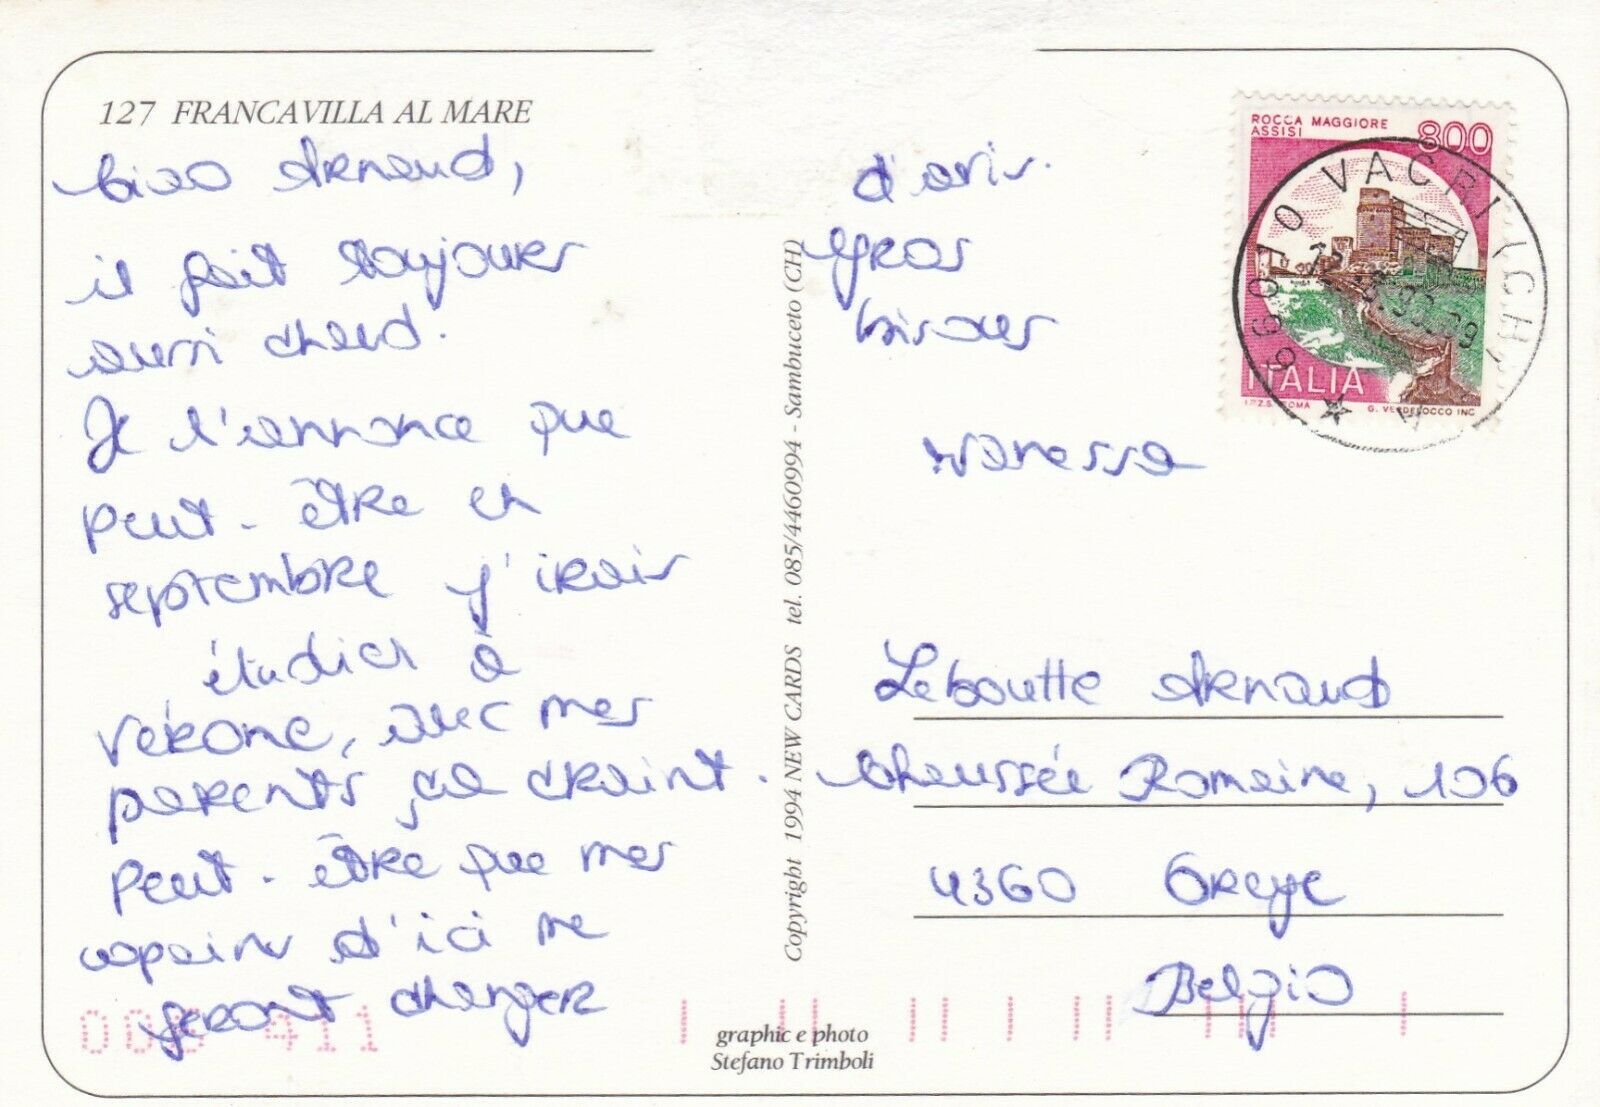 127 FRANCAVILLA AL MARE
Ciao Arnaud,
il fait toujours
aussi chaud.
Je t'annonce que
peut-être en
septembre j'irais
étudier à
Vérone, avec mes
parents ça craint.
Peut-être que mes
copains d'ici me
feront changer
d'avis.
Gros
bisous
Vanessa
ROCCA MAGGIORE
ASSISI
800
ITALIA
I.P.Z.S. ROMA
G. VERDELOCCO INC
66010 VACRI (CH)
Copyright 1994 NEW CARDS tel. 085/4460994 - Sambuceto (CH)
Leboutte Arnaud
Chaussée Romaine, 106
4360 Oreye
Belgio
graphic e photo
Stefano Trimboli